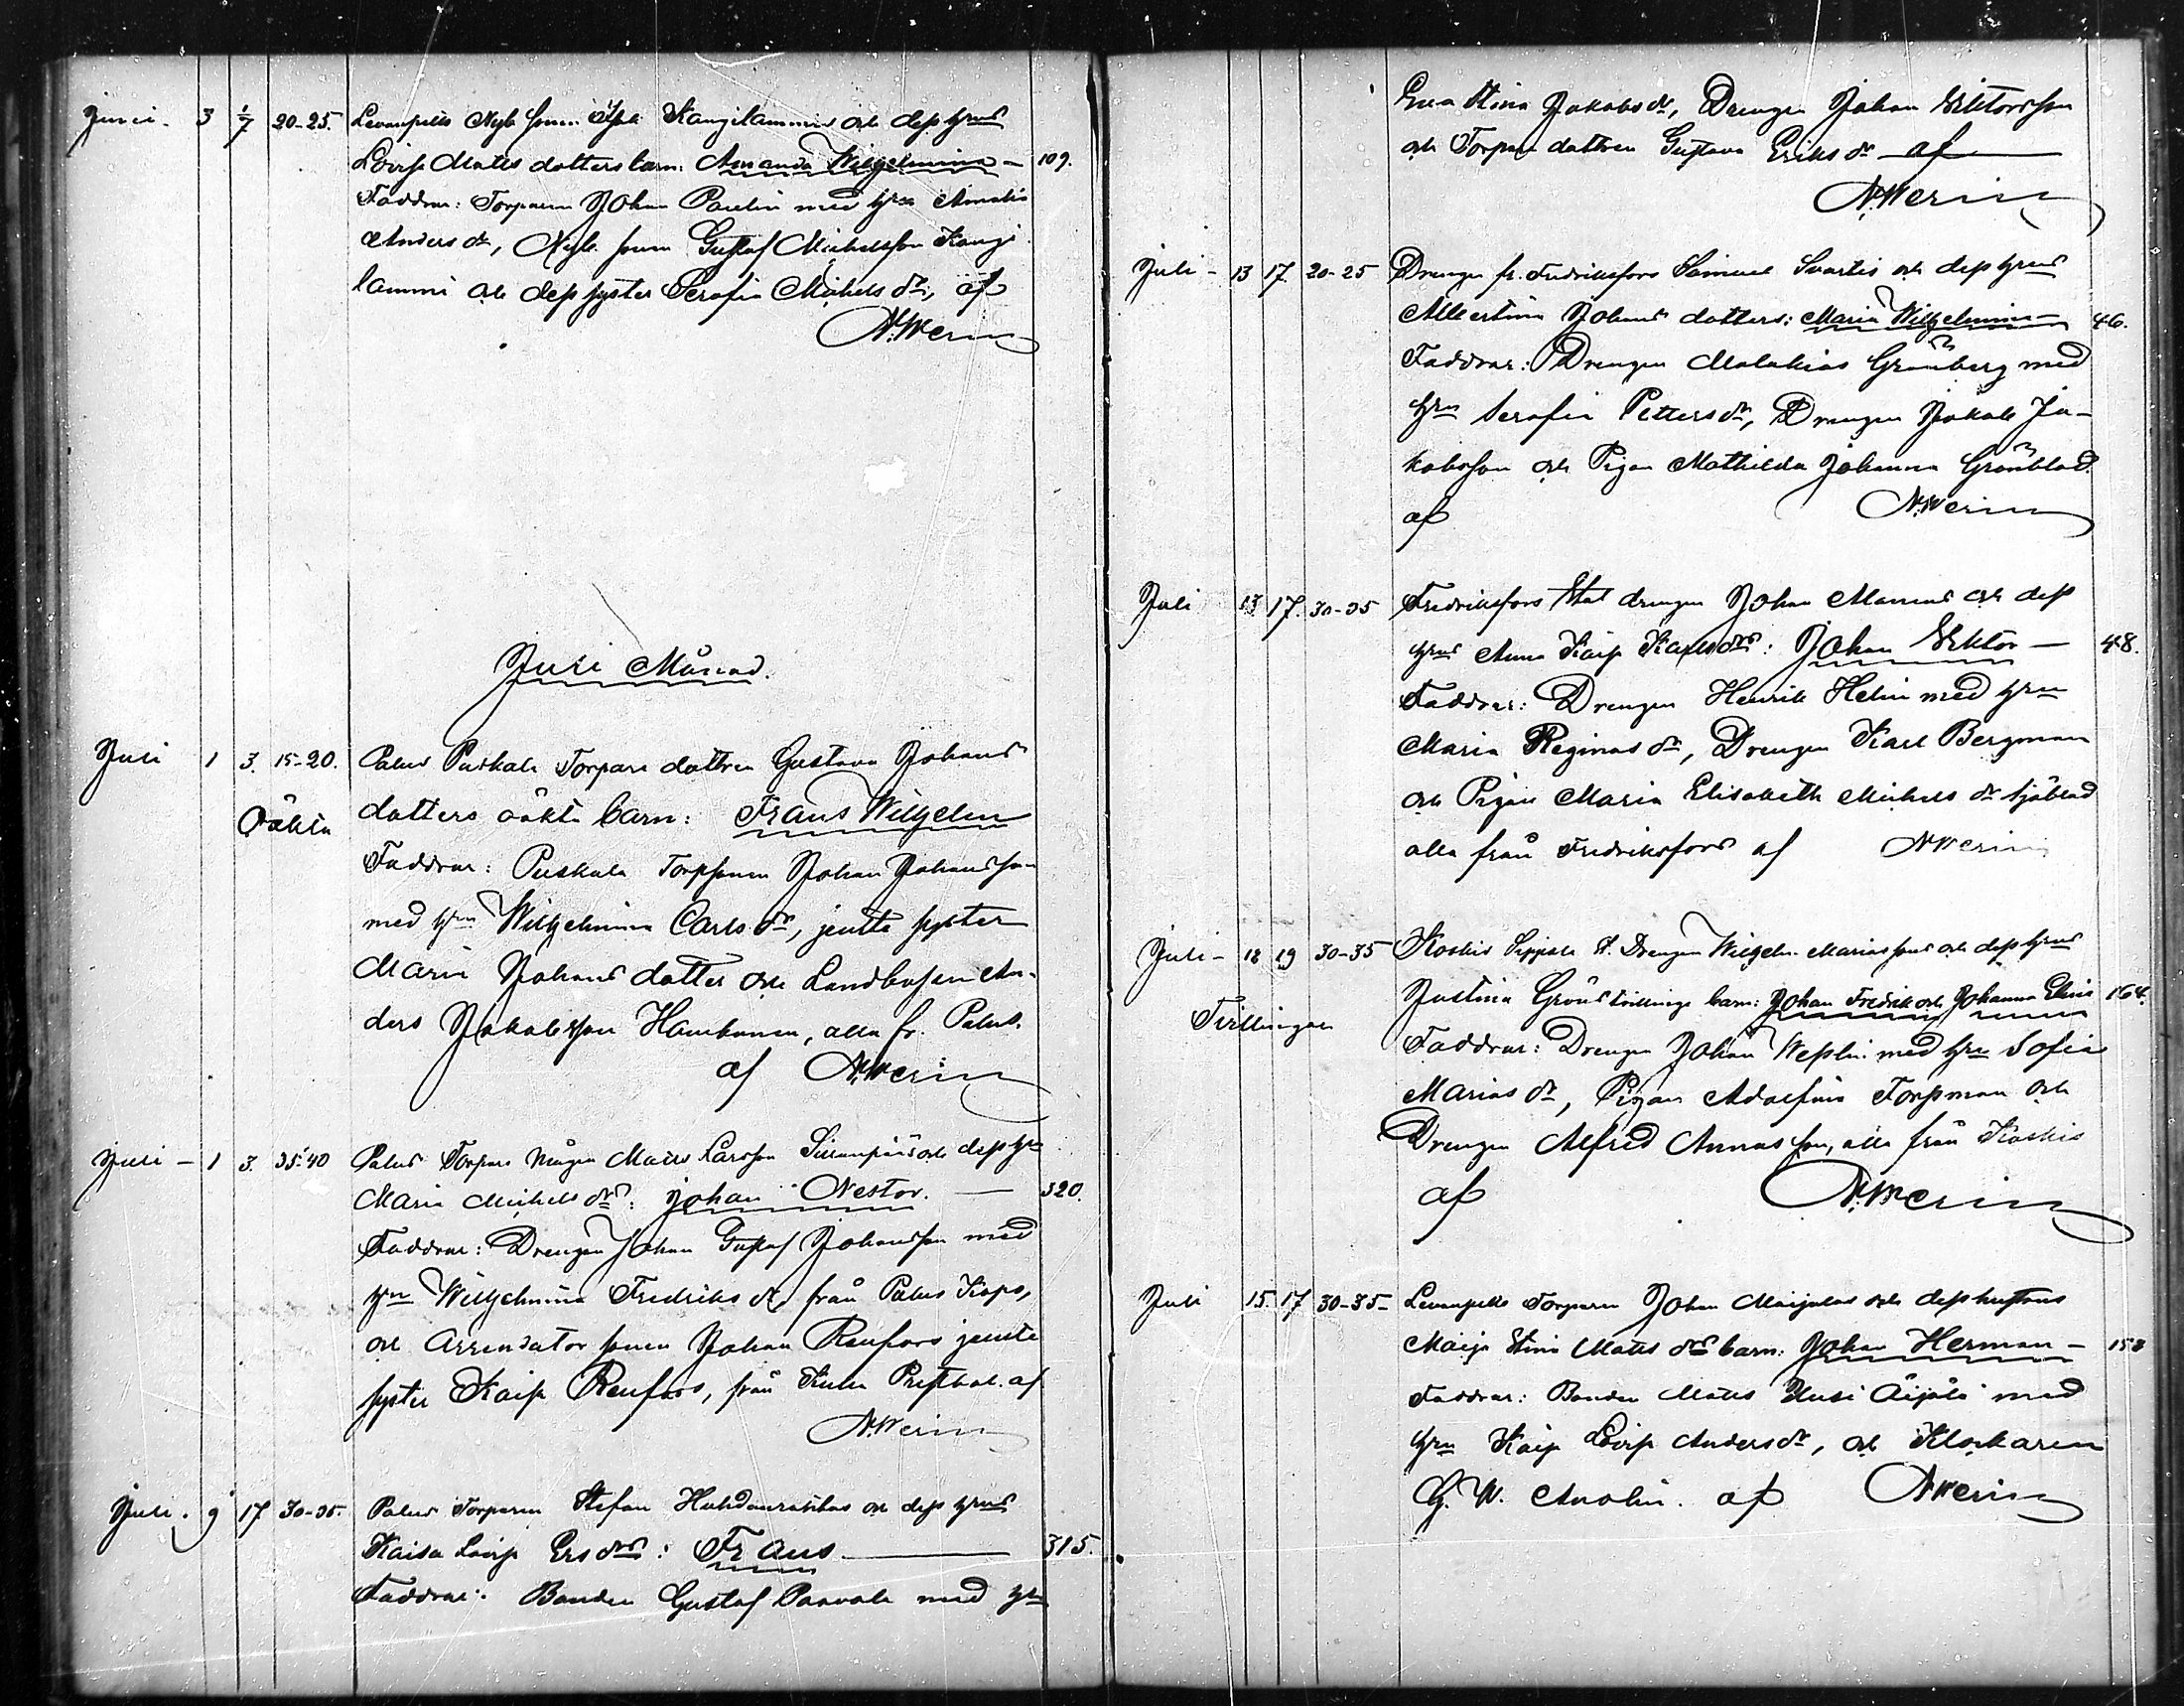 Juni - 3 1/7 20-25. Levanpelto Nyb. sonen Kangilammis och dess hrus
Lovisa Matts dotters barn: Amanda Wilhelmina — 109.
Faddrar: Torparen Johan Paulin med hru Amalia
Anders dr, Nyb. sonen Gustaf Michelsson Kangi
lammi och dess syster Serafia Michels dr, af
N. Werin
Juli Månad.
Juli 1 3. 15-20. Palus Puskala Torpare dottren Gustava Johans
Oäkta dotters oäkta barn: Frans Wilhelm
Faddrar: Puskala Torpsonen Johan Johansson
med hru Wilhelmina Carls dr, jemte syster
Maria Johans dotter och Landbosonen An-
ders Jakobsson Haukanen, alla fr. Palus.
af N. Werin
Juli - 1 3. 35-40 Palus Torpare mågen Matts Larsson Sillanpää och dess hru
Maria Michels drs: Johan Nestor. — 320.
Faddrar: Drengen Johan Gustaf Johansson med
hru Wilhelmina Fredriks dr från Palus Kaps,
och Arrendator sonen Johan Renfors jemte
syster Kaisa Renfors, från Prestbol. af
N. Werin
Juli. 9 17 30-35. Palus Torparen Stefan och dess hrus
Kaisa Lovisa Ers drs: Frans — 315.
Faddrar: Bonden Gustaf Paavola med hru
Eva Stina Jakobs dr, Drengen Johan Viktorsson
och Torpare dottren Gustava Eriks dr af
N. Werin
Juli - 13 17. 20-25 Drengen fr. Fredriksfors Samuel Svartis och dess hrus
Albertina Johans dotters: Maria Wilhelmina — 46.
Faddrar: Drengen Malakias Grönberg med
hru Serafia Petters dr, Drengen Jakob Ja-
kobsson och Pigan Mathilda Johanna Grönblad.
af N. Werin
Juli 13 17. 30-35 Fredriksfors Stat drengen Johan Manens och dess
hrus Anna Kaisa Karls drs: Johan Viktor — 48.
Faddrar: Drengen Henrik Helin med hru
Maria Reginas dr, Drengen Karl Bergman
och Pigan Maria Elisabeth Michels dr Sjöblad
alla från Fredriksfors af N. Werin
Juli - 12 19 30-35 Koskis Seppälä Drengen Wilhelm Mariassons och dess hrus
Justina Gröns tvillinge barn: Johan Fredrik och Johanna Elvira 164.
Tvillingar
Faddrar: Drengen Johan Weslin med hru Sofia
Marias dr, Pigan Adolfina Forsman och
Drengen Alfred Annasson, alla från Koskis
af N. Werin
Juli 15. 17 30-35- Levanpelto Torparen Johan Maijalas och dess hustrus
Maija Stina Matts drs barn: Johan Herman — 158
Faddrar: Bonden Matts Uusi Äijälä med
hru Kaisa Lovisa Anders dr, och Klockaren
G. W. Anolin. af N. Werin